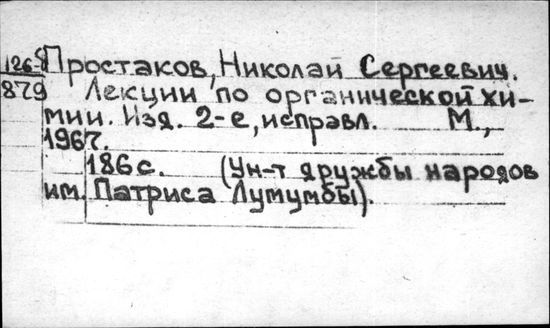 126-5 Простаков, Николай Сергеевич.
879 Лекции по органической хи-
мии. Изд. 2-е, исправл. М.,
1967.
186 с. (Ун-т дружбы народов
им. Патриса Лумумбы).